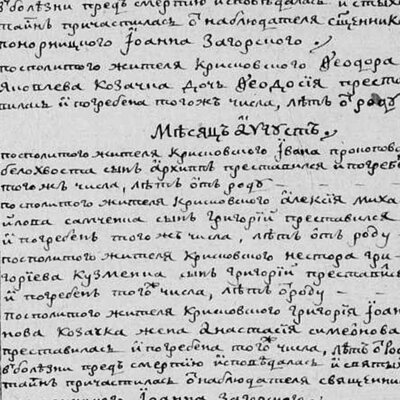 в болезни предъ смертию исповѣдалась и стыхъ
таинъ причастилась ѿ наблюдателя сщенника
понорницкого Іоанна Загорского
посполитого жителя Крисковского Ѳеодора
Яковлева козачка дочь Ѳеодосія преста
вилась и погребена того жъ числа, лѣтъ ѿ роду
Мѣсяцъ Августъ
посполитого жителя Крисковского Івана прокопова
белохвоста сынъ архиппъ преставился и погребенъ
того жъ числа, лѣтъ ѿтъ роду
посполитого жителя Крисковского алексія миха
йлова самченка сынъ григорій преставился
и погребенъ того жъ числа, лѣтъ ѿтъ роду
посполитого жителя Крисковского нестора гри
горіева кузменка сынъ григорій преставился
и погребенъ того числа, лѣтъ ѿ роду
посполитого жителя Крисковского григорія Іоан
нова козачка жена анастасія симеонова
преставилась и погребена того числа, лѣтъ ѿ
в болезни предъ смертию исповѣдалась и святыхъ
таинъ причастилась ѿ наблюдателя священника
Іоанна Загорского